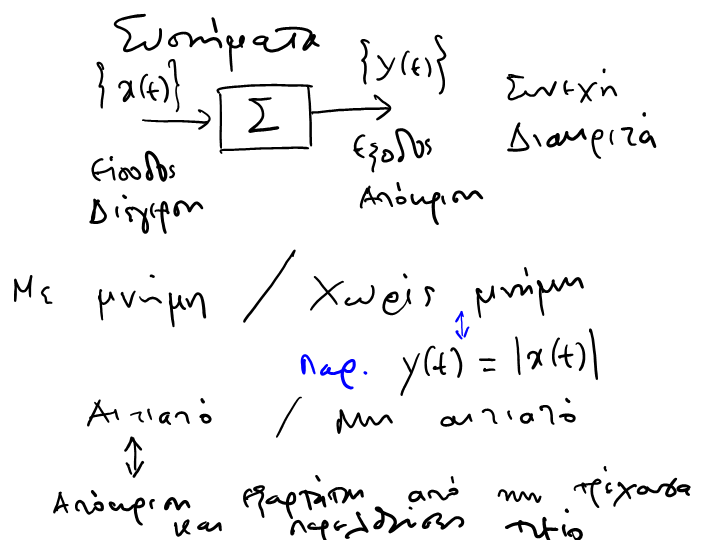 Συστήματα
{x(t)} Σ {y(t)}
Είσοδος Έξοδος Συνεχή
Διέγερση Απόκριση Διακριτά
Με μνήμη / Χωρίς μνήμη
Παρ. y(t) = |x(t)|
Αιτιατό / Μη αιτιατό
Απόκριση εξαρτάται από την τρέχουσα
και παρελθούσες τιμές